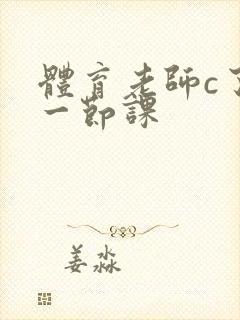 體育老師c了
一節課
姜淼